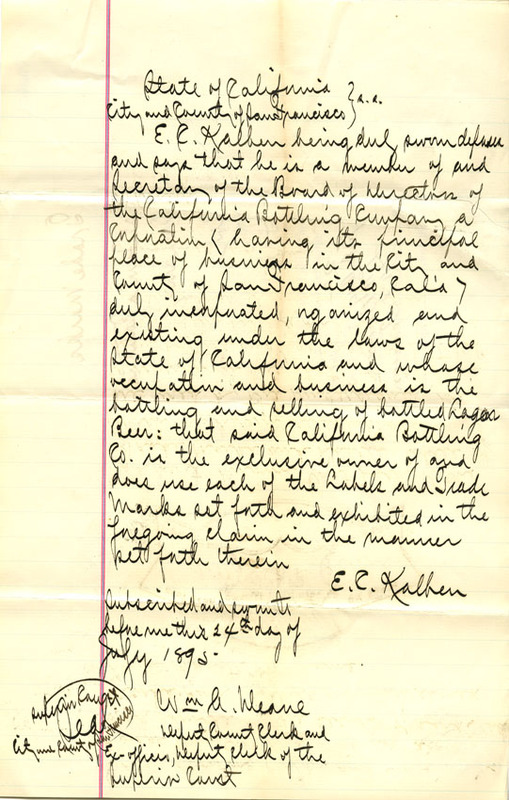 State of California } s.s.
City and County of San Francisco }
E. C. Kalben being duly sworn deposes
and says that he is a member of and
Secretary of the Board of Directors of
the California Bottling Company a
Corporation ( having its principal
place of business in the City and
County of San Francisco, Cala )
duly incorporated, organized and
existing under the laws of the
State of California and whose
occupation and business is the
bottling and selling of bottled Lager
Beer: that said California Bottling
Co. is the exclusive owner of and
does use each of the Labels and Trade
Marks set forth and exhibited in the
foregoing claim in the manner
set forth therein
E. C. Kalben
Subscribed and sworn to
before me this 24th day of
July 1895.
Wm A. Deane
Deput County Clerk and
Ex-officio, Deput Clerk of the
Superior Court
Superior Court
Seal
City and County of San Francisco